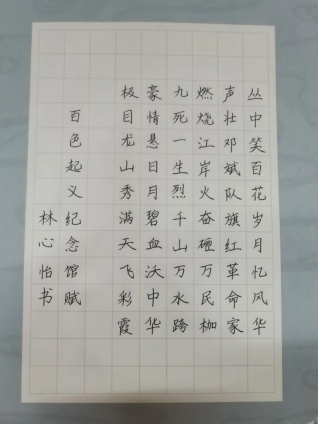 丛中笑百花岁月忆风华
声壮邓斌队旗红革命家
燃烧江岸火奋砸万民枷
九死一生烈千山万水跨
豪情悬日月碧血沃中华
极目龙山秀满天飞彩霞
百色起义纪念馆赋
林心怡书